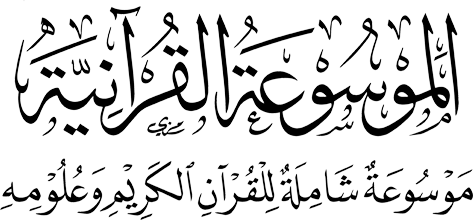 المَوْسُوعَةُ القُرْآنِيَّةُ
مَوْسُوعَةٌ شَامِلَةٌ لِلْقُرْآنِ الكَرِيْمِ وَعُلُوْمِهِ